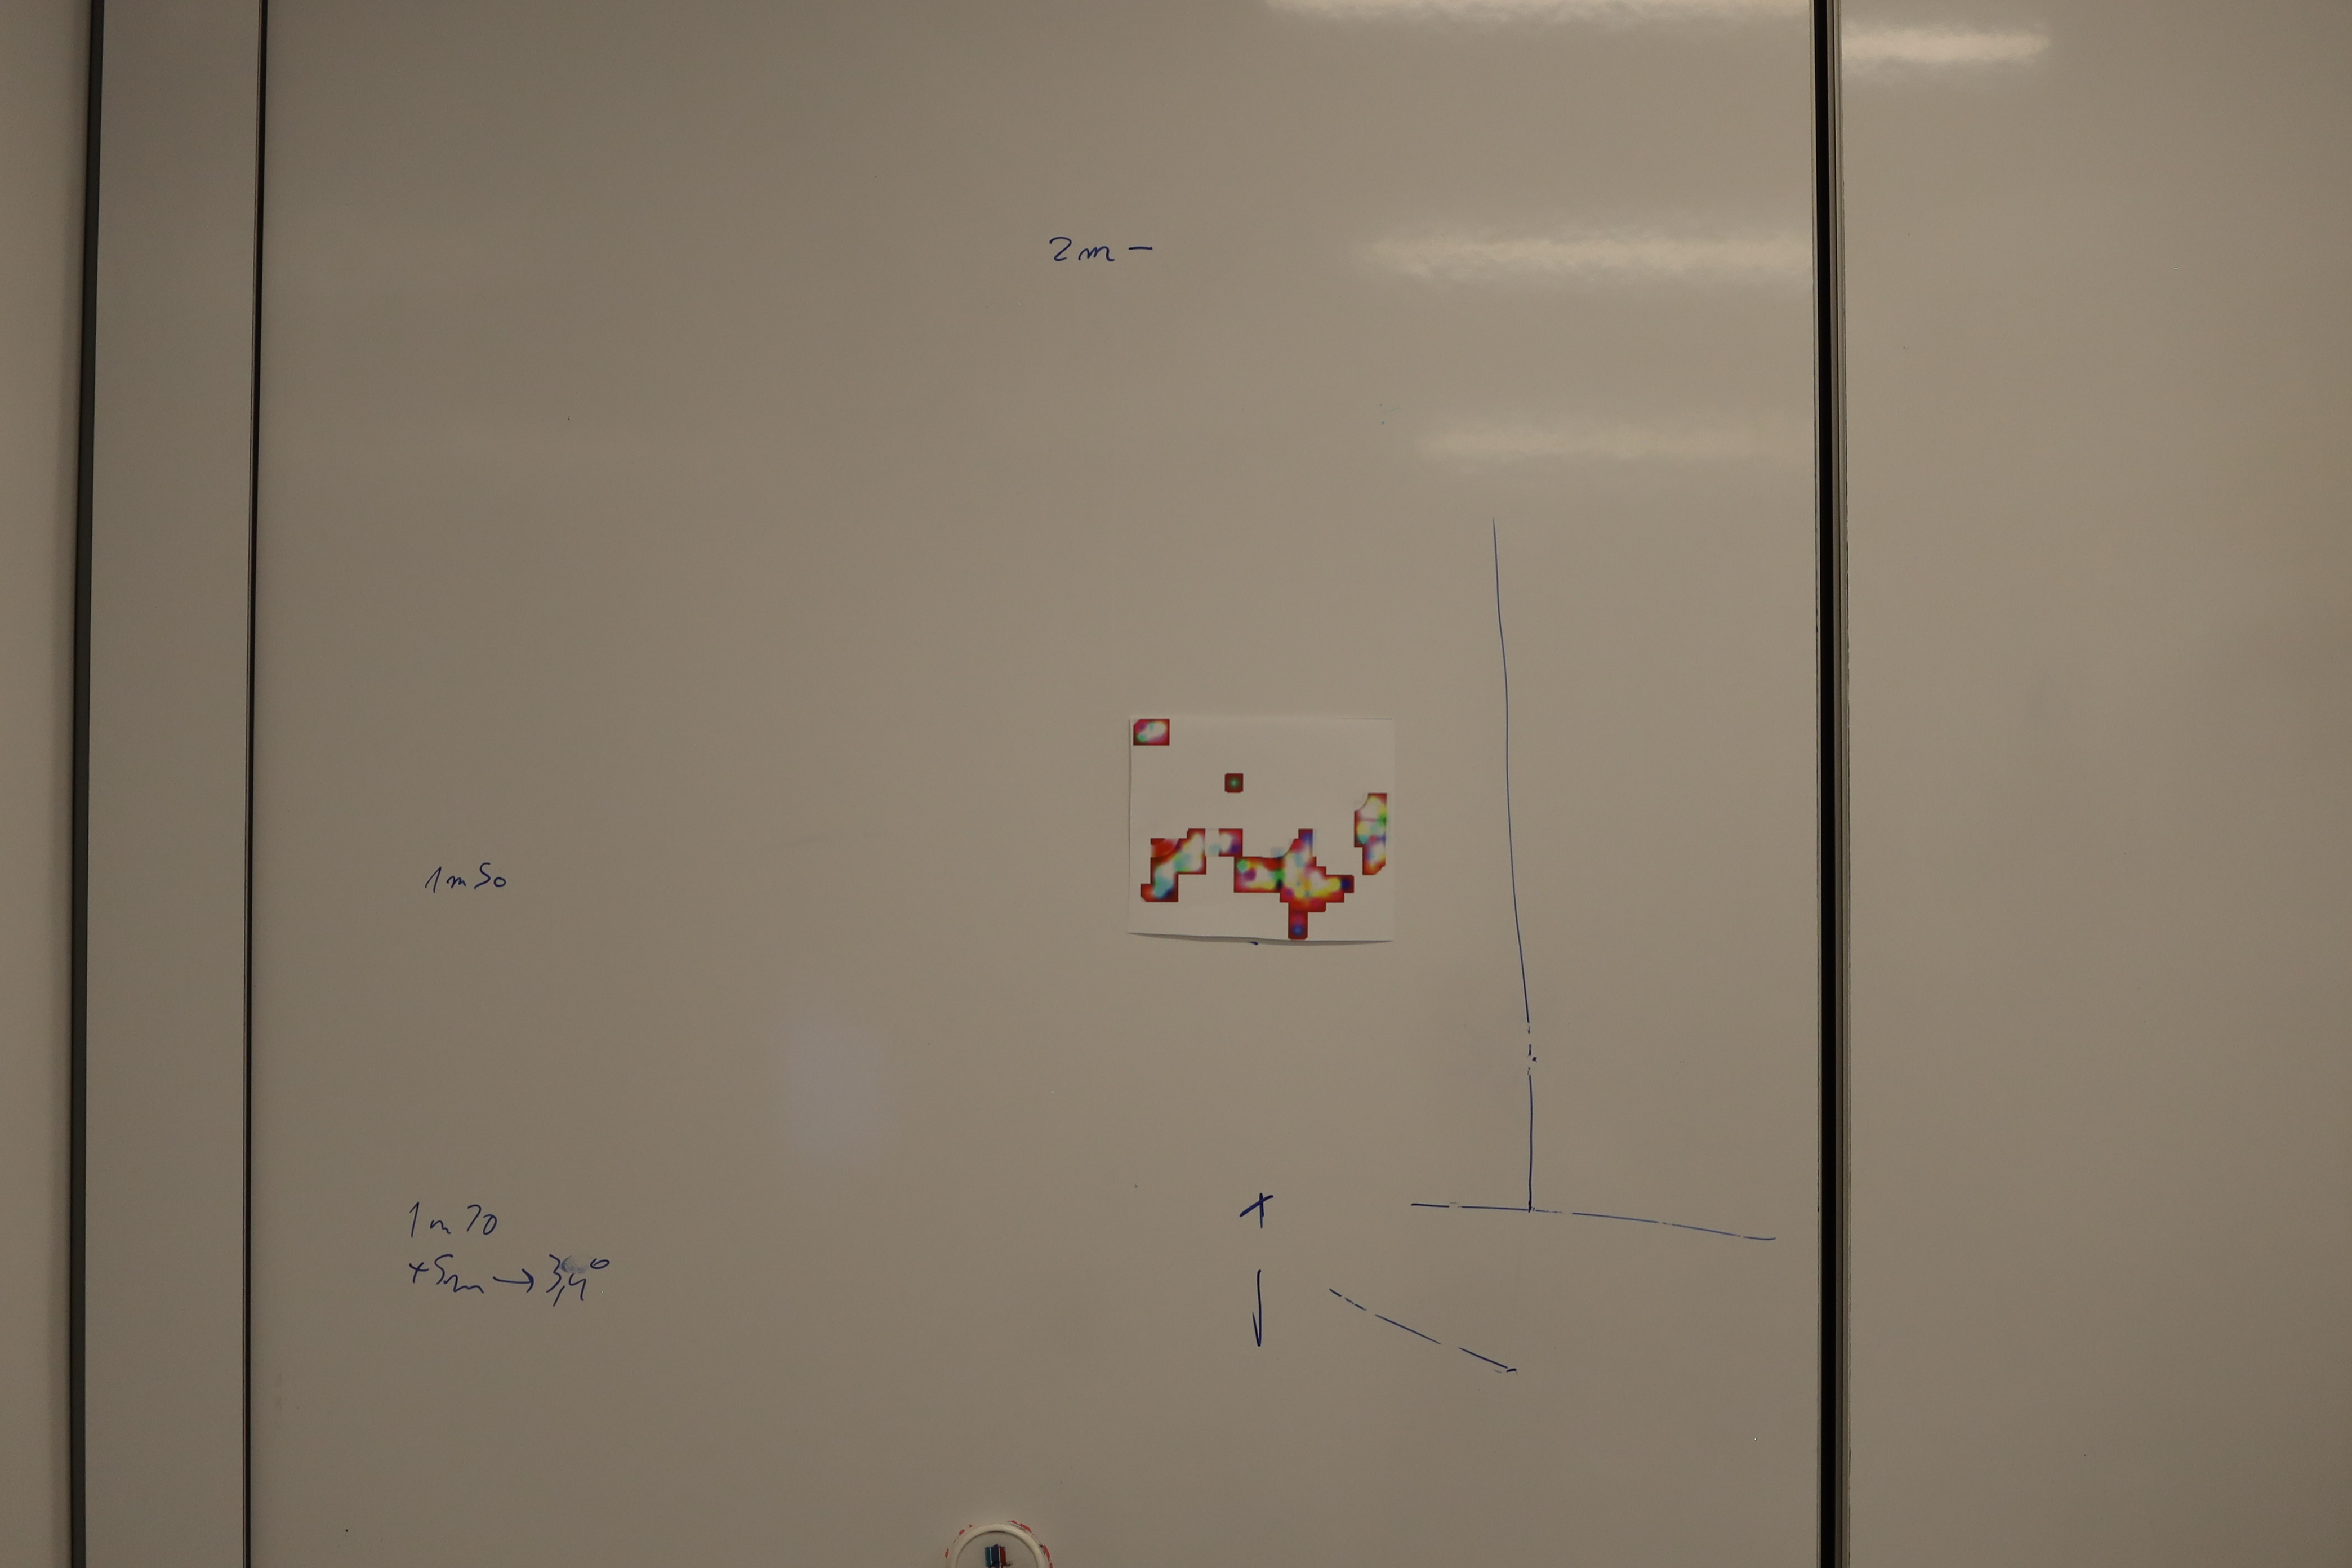 2m -
1m50
1m70
+5m → 3,4°